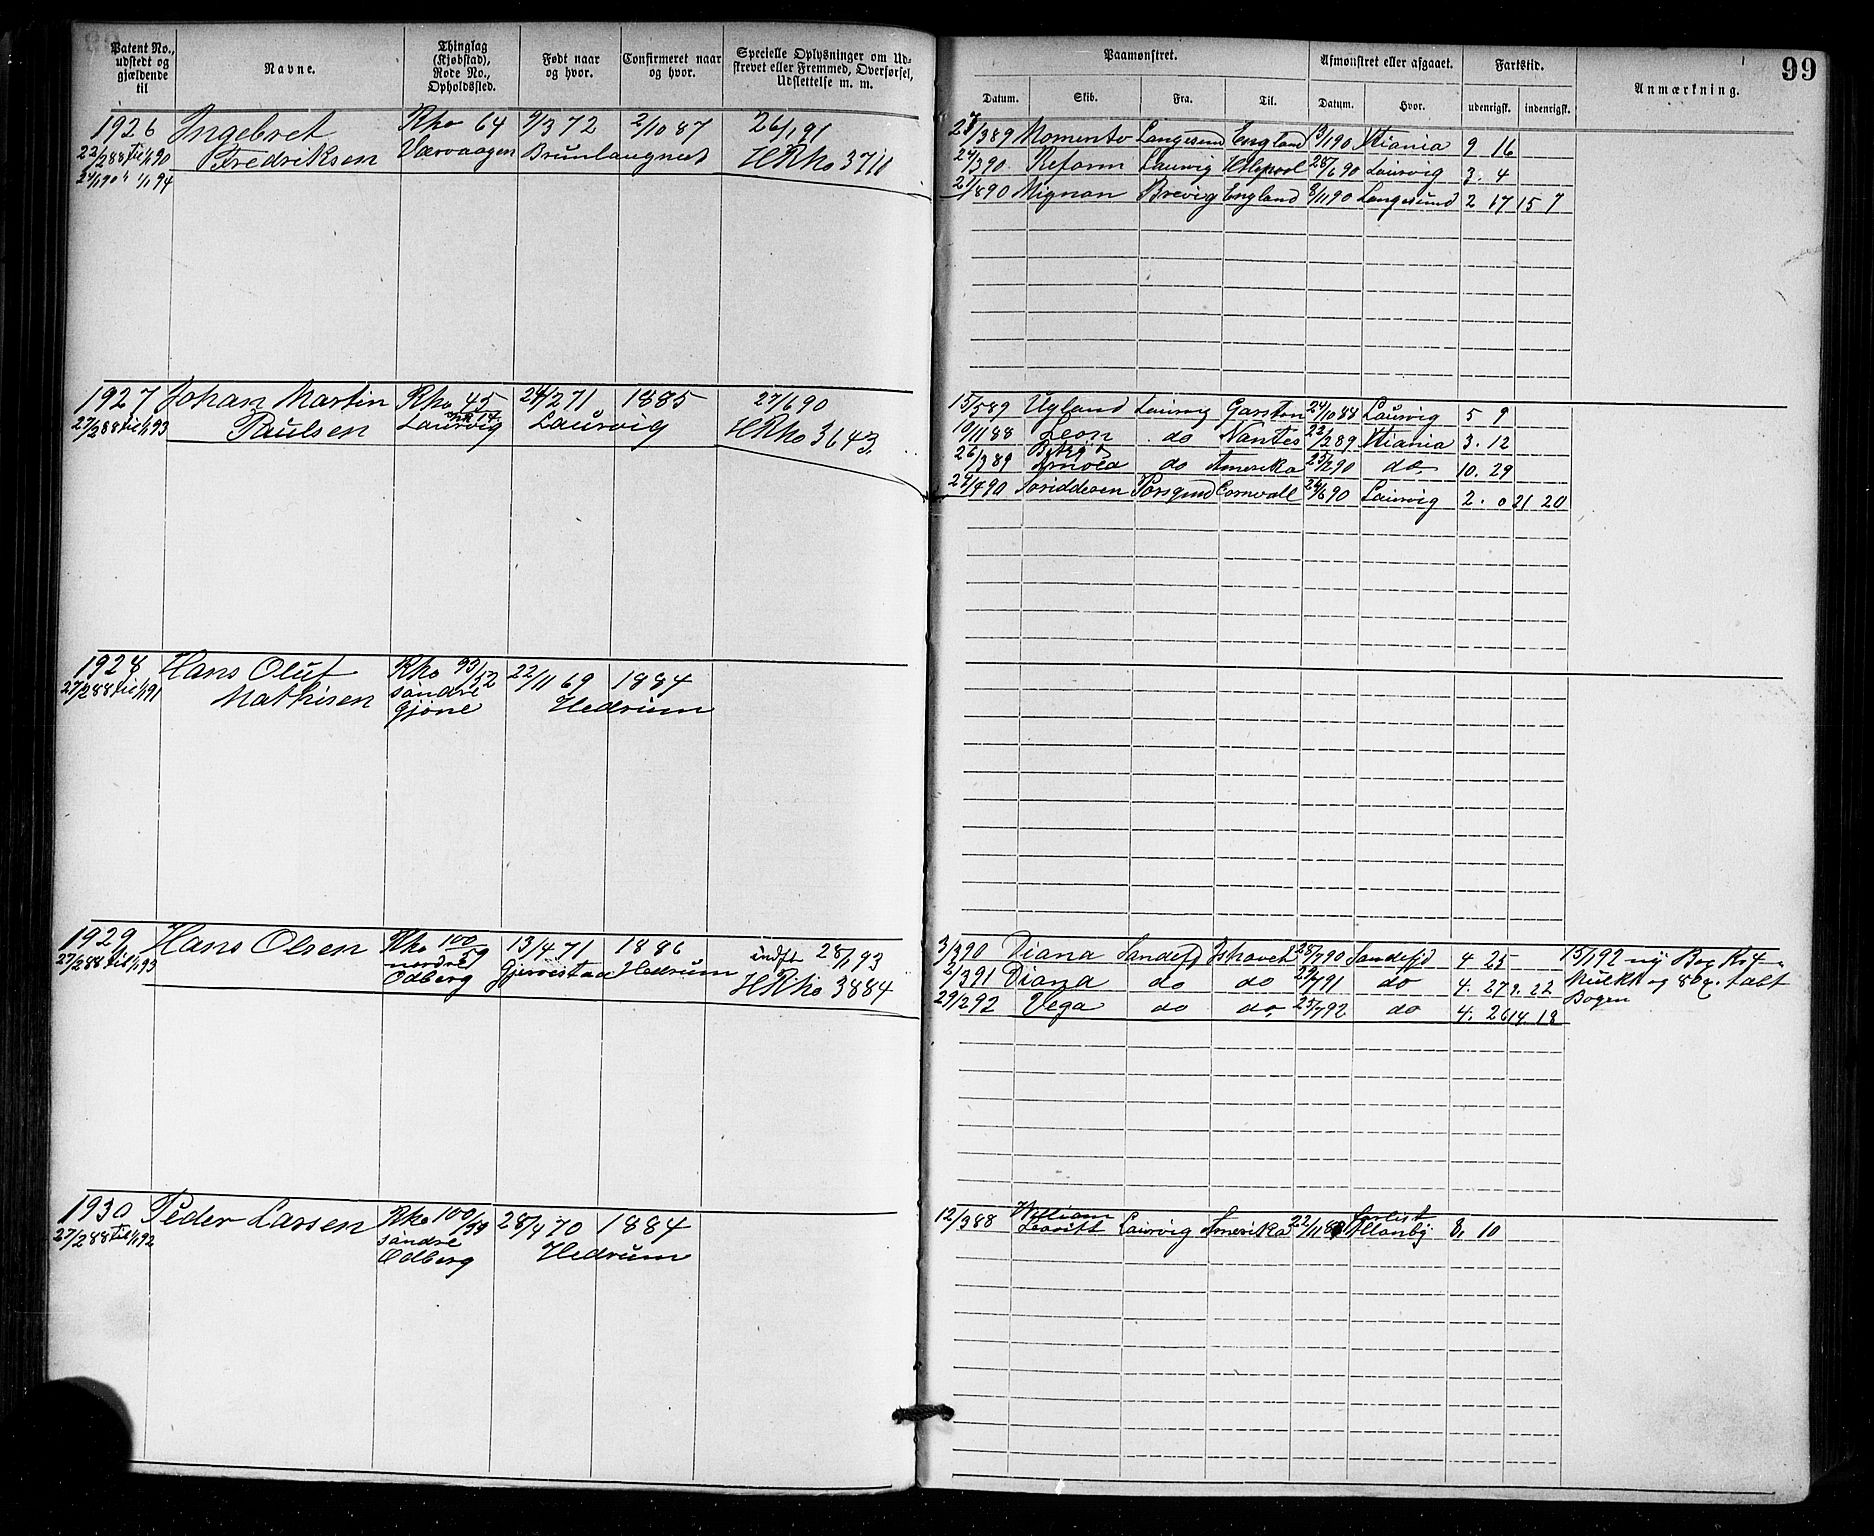 99
Patent No., udstedt og gjældende til
Navne.
Thinglag (Kjøbstad), Rode No., Opholdssted.
Født naar og hvor.
Confirmeret naar og hvor.
Specielle Oplysninger om Udskrevet eller Fremmed, Overførsel, Udslettelse m. m.
Paamønstret.
Afmønstret eller afgaaet.
Fartstid.
Anmærkning.
Datum. Skib. Fra. Til. Datum. Hvor. udenrigsk. indenrigsk.
1926 Ingebret Rho 64 9/3 72 2/10 87 26/1 91
22/2 88 til 1/1 90 Fredriksen Værvaagen Brunlaugnæs HRho 3711
24/1 90 " 1/1 94
27/3 89 Momento Langesund England 13/1 90 Xtiania 9 16
24/3 90 Reform Laurvig Htlepool 28/6 90 Laurvig 3. 4
21/8 90 Mignon Brevig England 8/11 90 Langesund 2 17 15 7
1927 Johan Martin Rho 45 24/2 71 1885 27/6 90
27/2 88 til 1/1 93 Paulsen Laurvig Laurvig HRho 3643
15/5 89 Ugland Laurvig Garston 24/10 88 Laurvig 5 9
10/11 88 Leon do Nantes 22/2 89 Xtiania 3. 12
26/3 89 do Amerika 25/2 90 do 10. 29
29/4 90 Porsgrund Cornvall 24/6 90 Laurvig 2. 0 21 20
1928 Hans Oluf Rho 93/52 22/11 69 1884
27/2 88 til 1/1 91 Mathisen søndre Hedrum
Gjøne
1929 Hans Olsen Rho 100/59 13/4 71 1886 indft 28/1 93
27/2 88 til 1/1 93 nordre Gjerrestad Hedrum HRho 3884
Odberg
3/3 90 Diana Sandefj Ishavet 28/7 90 Sandefjd 4 25 15/1 92 ny Bog Kr 4.
2/3 91 Diana do do 29/7 91 do 4. 27 9. 22 Mulkt og 80 ø. tabt
29/2 92 Vega do do. 25/7 92 do 4. 26 14. 18 Bogen
1930 Peder Larsen Rho 100/59 28/4 70 1884
27/2 88 til 1/1 92 søndre Hedrum
Odberg
12/3 88 William Leavitt Laurvig Amerika 22/11 88 forlist Allonby 8, 10